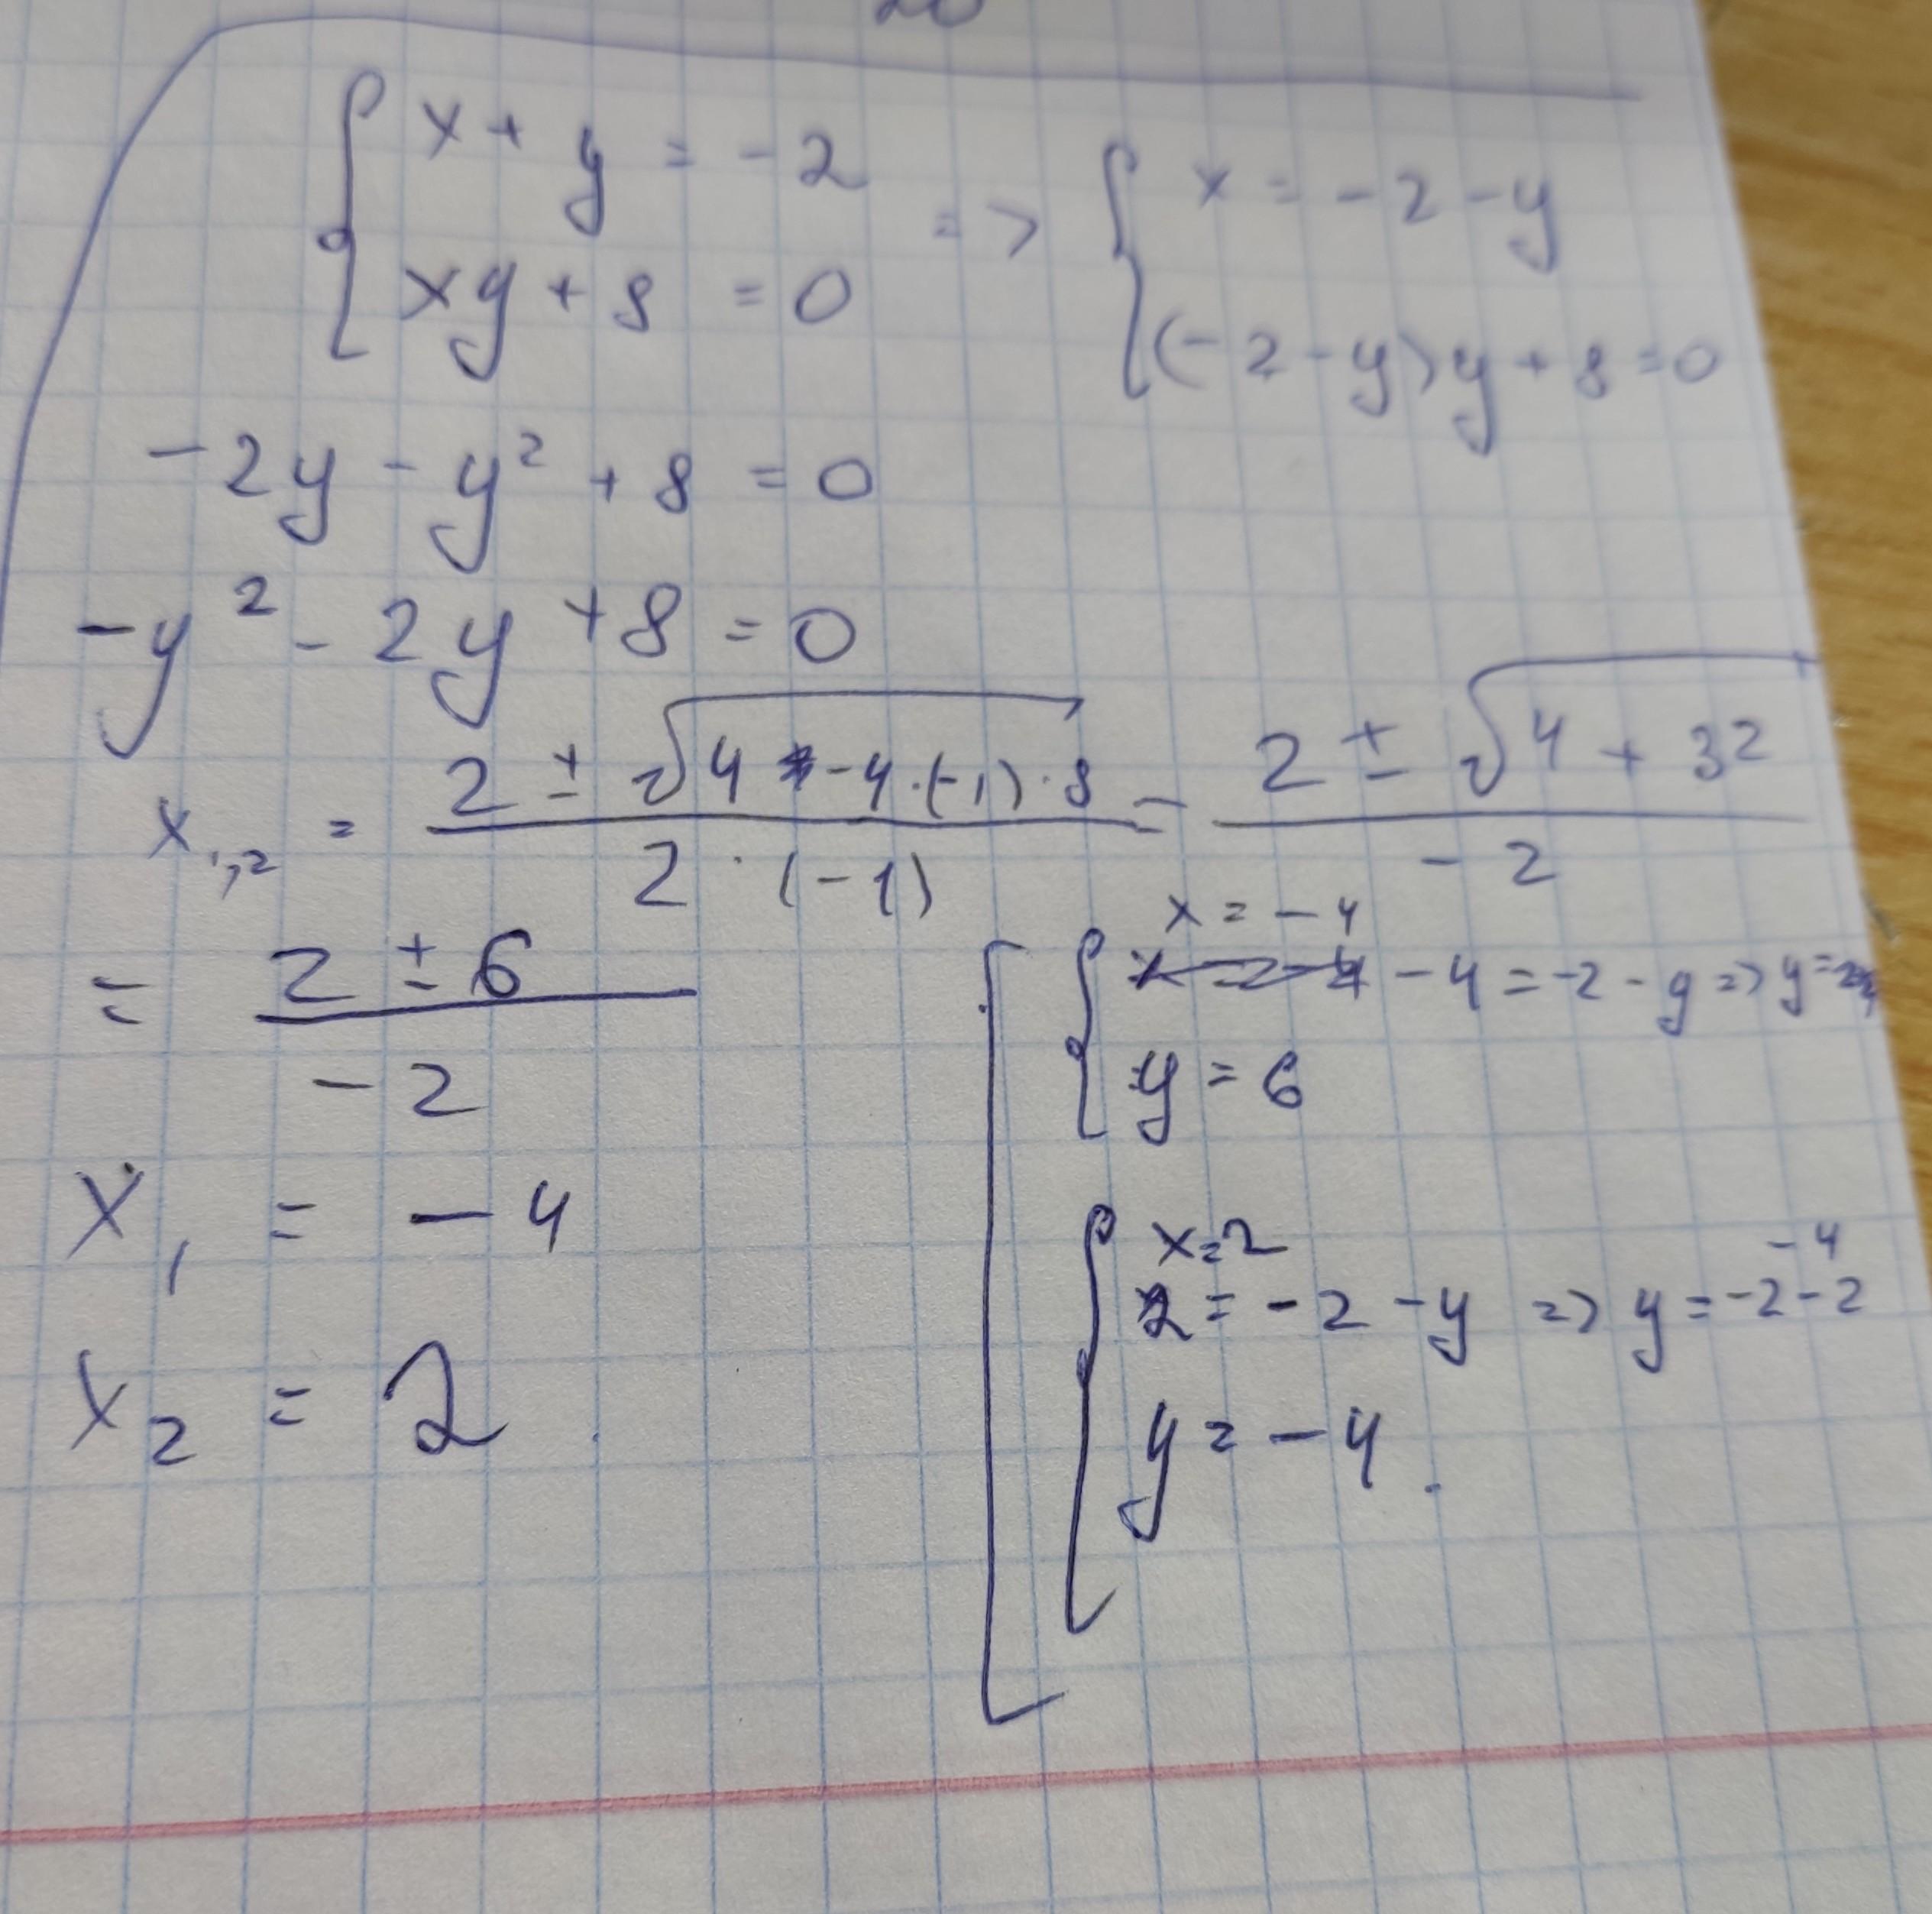 20
{ x + y = -2
xy + 8 = 0 => { x = -2 - y
(-2 - y)y + 8 = 0
-2y - y² + 8 = 0
-y² - 2y + 8 = 0
x₁,₂ = (2 ± √(4 - 4·(-1)·8)) / (2·(-1)) = (2 ± √(4 + 32)) / (-2)
= (2 ± 6) / (-2)
x₁ = -4
x₂ = 2
[ { x = -4
-4 = -2 - y => y =
y = 6
{ x = 2
2 = -2 - y => y = -2 - 2
-4
y = -4.